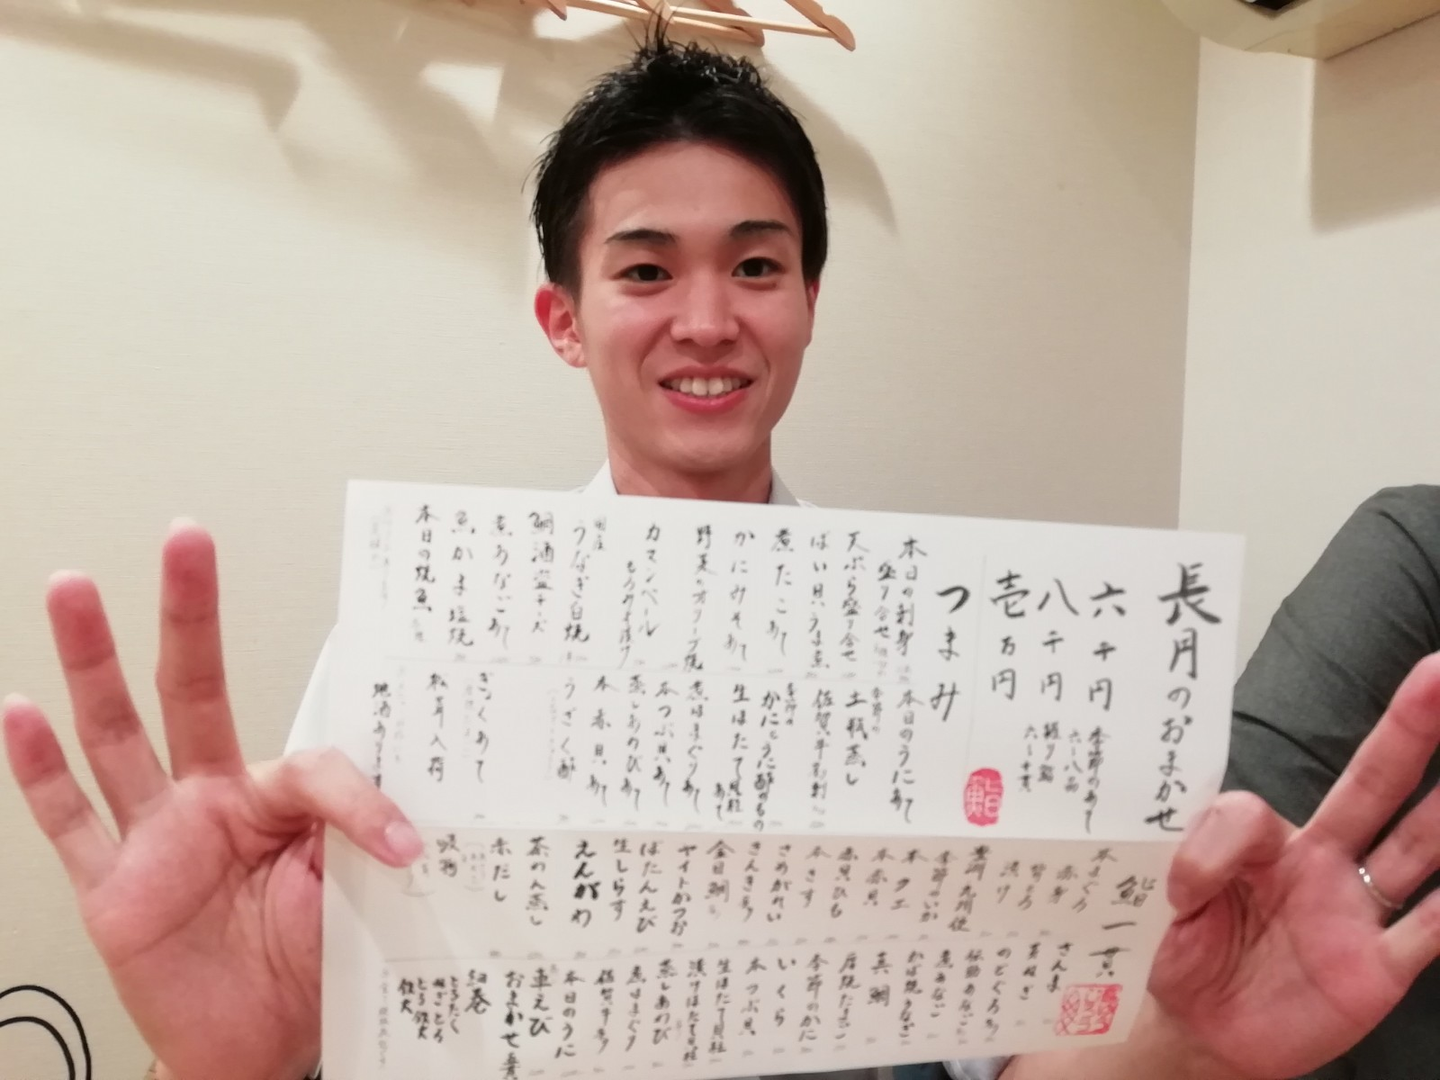 長月のおまかせ
六千円
季節のあて
六〜八品
八千円
握り鮨
六〜十貫
壱万円
つまみ
本日の刺身
盛り合せ
天ぷら盛り合せ
ばい貝うま煮
煮たこあて
かにみそあて
野菜のオーブン焼
カマンベール
もろみそ漬け
国産
うなぎ白焼
鯛酒盗チーズ
煮あなごあて
魚かま塩焼
本日の焼魚
本日のうにあて
季節の
土瓶蒸し
佐賀牛お刺し
季節の
かにとうに酢のもの
生ほたて貝柱
あて
煮はまぐりあて
本つぶ貝あて
蒸しあわびあて
本赤貝あて
うざく酢
松茸入荷
地酒あります
鮨一貫
本まぐろ
赤身
背とろ
漬け
季節のいか
本クエ
本赤貝
赤貝ひも
本きす
さめがれい
きんき炙り
金目鯛
ヤイトかつお
ぼたんえび
生しらす
えんがわ
茶わん蒸し
赤だし
吸物
さんま
芽ねぎ
のどぐろ炙り
伝助あなご
煮あなご
かば焼うなぎ
真鯛
厚焼たまご
季節のかに
いくら
本つぶ貝
生ほたて貝柱
漬けほたて貝柱
蒸しあわび
煮はまぐり
佐賀牛炙り
本日のうに
車えび
おまかせ五貫
細巻
とろたく
ねぎとろ
とろ鉄火
鉄火